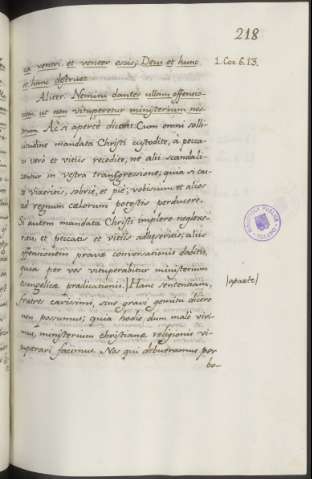 218
ca ventri, et venter escis; Deus et hunc, 1. Cor. 6. 13.
et hanc destruet.
Aliter. Nemini dantes ullam offensio-
nem, ut non vituperetur ministerium nos-
trum. Ac si apertè dicat: Cum omni solli-
citudine mandata Christi custodite, à pecca-
tis verò et vitiis recedite, ne alii scandali-
zentur in vestra transgressione; quia si cas-
tè vixeritis, sobriè, et piè; vobiscum et alios
ad regnum cælorum potestis perducere.
Si autem mandata Christi implere neglexe-
ritis, et peccatis et vitiis adhæseritis; aliis
offensionem pravæ conversationis dabitis,
quia per vos vituperabitur ministerium
evangelicæ prædicationis.] Hanc sententiam, [aparte]
fratres carissimi, sine gravi gemitu dicere
non possumus; quia hodie dum malè vivi-
mus, ministerium christianæ religionis vi-
tuperari facimus. Nos qui debueramus per
bo-